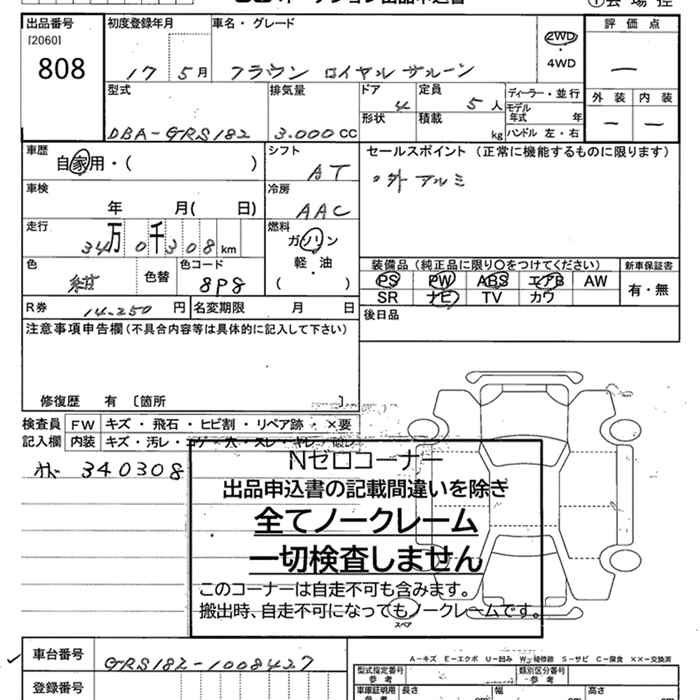 オークション出品申込書
出品番号
[2060]
808
初度登録年月
17 5月
車名・グレード
クラウン ロイヤルサルーン
2WD
・
4WD
評価点
―
外装 内装
― ―
型式
DBA-GRS182
排気量
3.000cc
ドア
4
定員
5人
形状
積載
kg
ディーラー・並行
モデル
年式 年
ハンドル 左・右
車歴
自家用・( )
シフト
AT
セールスポイント (正常に機能するものに限ります)
・外アルミ
車検
年 月( 日)
冷房
AAC
走行
34万0千308km
燃料
ガソリン
軽・油
( )
色
紺
色替
色コード
8P8
装備品 (純正品に限り○をつけてください)
PS PW ABS エアB AW
SR ナビ TV カワ
新車保証書
有・無
R券 14-250円
名変期限 月 日
後日品
注意事項申告欄(不具合内容等は具体的に記入して下さい)
修復歴 有 〔箇所 〕
検査員
記入欄
FW キズ・飛石・ヒビ割・リペア跡・×要
内装 キズ・汚レ・コゲ・穴・スレ・キレ・破レ
340308
Nゼロコーナー
出品申込書の記載間違いを除き
全てノークレーム
一切検査しません
このコーナーは自走不可も含みます。
搬出時、自走不可になってもノークレームです。
スペア
A－キズ E－エクボ U－凹み W－補修跡 S－サビ C－腐食 ××－交換済
車台番号 GRS182-1008427
登録番号
型式指定番号
参考
類別区分番号
参考
車庫証明用
参考
長さ cm
幅 cm
高さ cm